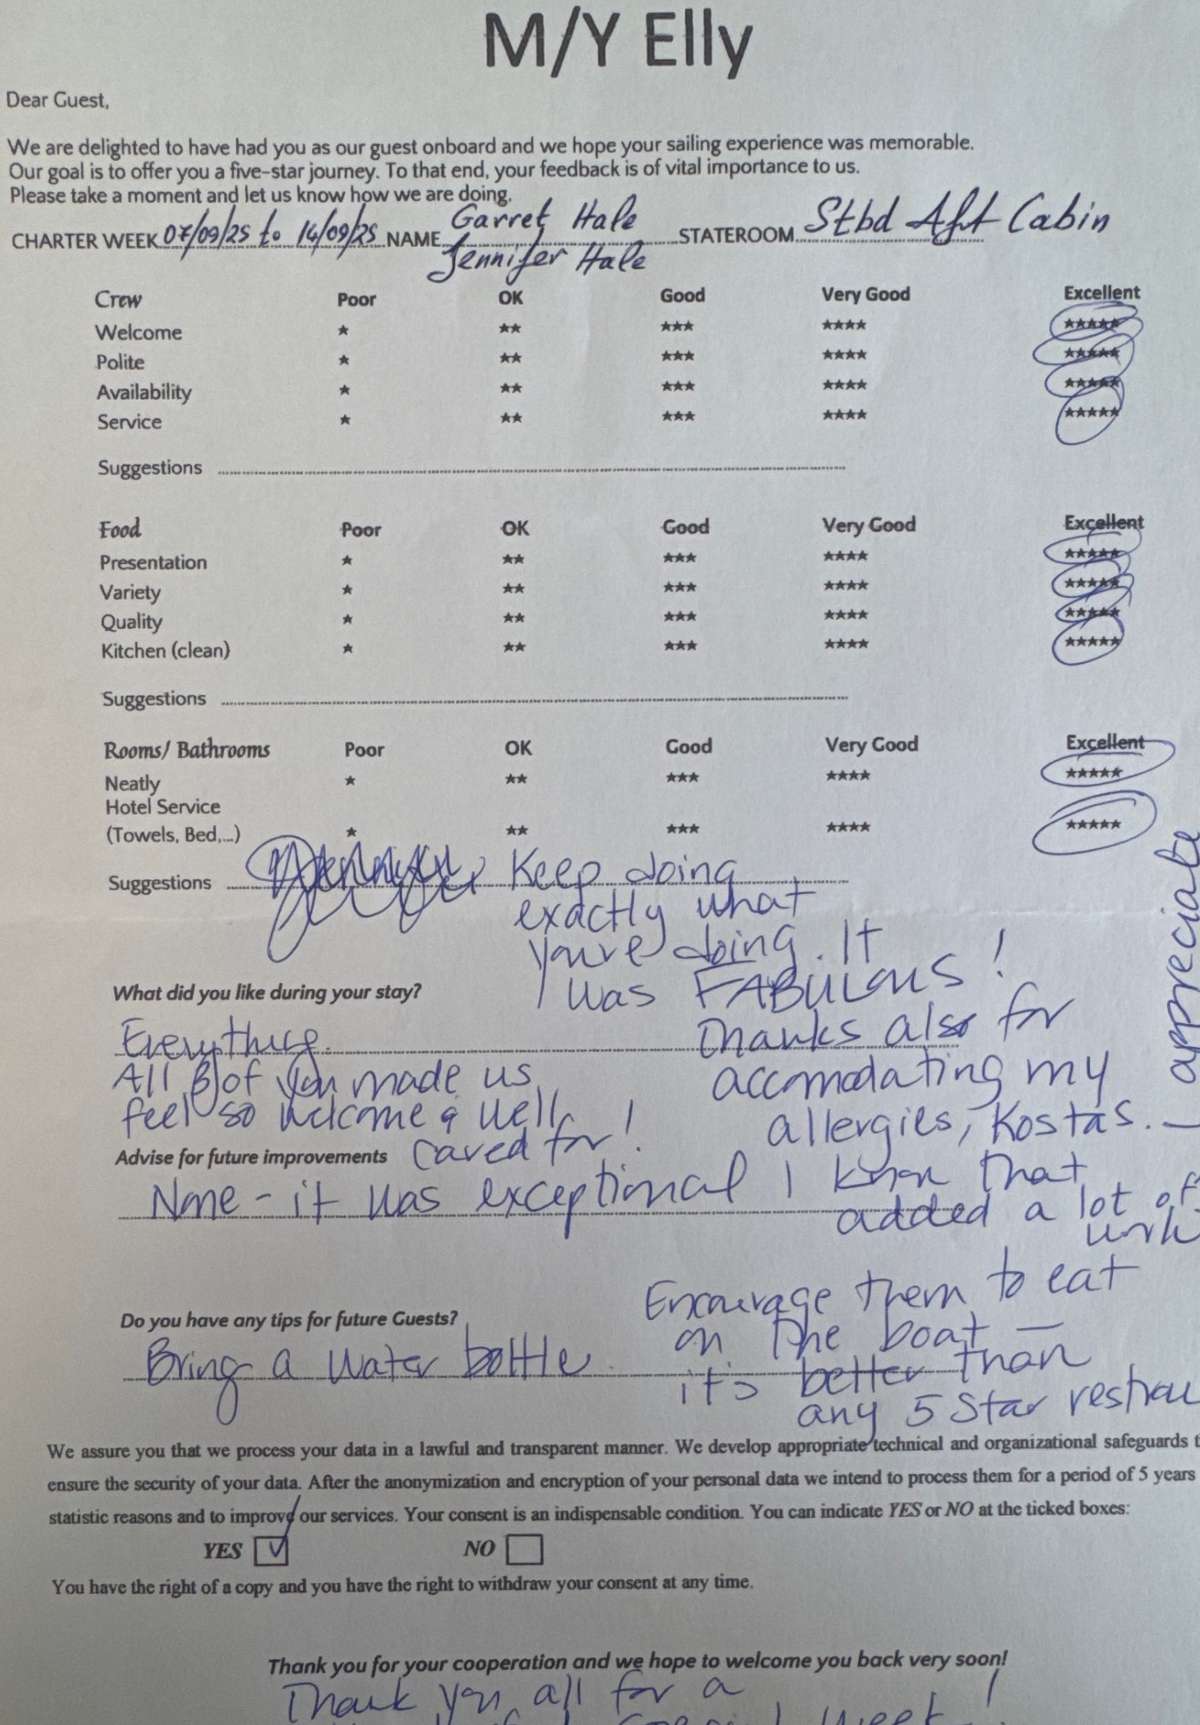 M/Y Elly
Dear Guest,
We are delighted to have had you as our guest onboard and we hope your sailing experience was memorable.
Our goal is to offer you a five-star journey. To that end, your feedback is of vital importance to us.
Please take a moment and let us know how we are doing.
CHARTER WEEK 07/09/25 to 14/09/25 NAME Garret Hale STATEROOM Stbd Aft Cabin
Jennifer Hale
Crew Poor OK Good Very Good Excellent
Welcome ★ ★★ ★★★ ★★★★ ★★★★★
Polite ★ ★★ ★★★ ★★★★ ★★★★★
Availability ★ ★★ ★★★ ★★★★ ★★★★★
Service ★ ★★ ★★★ ★★★★ ★★★★★
Suggestions
Food Poor OK Good Very Good Excellent
Presentation ★ ★★ ★★★ ★★★★ ★★★★★
Variety ★ ★★ ★★★ ★★★★ ★★★★★
Quality ★ ★★ ★★★ ★★★★ ★★★★★
Kitchen (clean) ★ ★★ ★★★ ★★★★ ★★★★★
Suggestions
Rooms/ Bathrooms Poor OK Good Very Good Excellent
Neatly ★ ★★ ★★★ ★★★★ ★★★★★
Hotel Service
(Towels, Bed,...) ★ ★★ ★★★ ★★★★ ★★★★★
Suggestions Keep doing
exactly what
you're doing. It
was FABULOUS!
What did you like during your stay?
Everything.
All 8 of you made us
feel so welcome & well
cared for!
Thanks also for
accomodating my
allergies, Kostas. —
appreciate
Advise for future improvements
None - it was exceptional
I know that
added a lot of
work
Do you have any tips for future Guests?
Bring a water bottle.
Encourage them to eat
on the boat —
it's better than
any 5 Star restrau
We assure you that we process your data in a lawful and transparent manner. We develop appropriate technical and organizational safeguards t
ensure the security of your data. After the anonymization and encryption of your personal data we intend to process them for a period of 5 years
statistic reasons and to improve our services. Your consent is an indispensable condition. You can indicate YES or NO at the ticked boxes:
YES NO
You have the right of a copy and you have the right to withdraw your consent at any time.
Thank you for your cooperation and we hope to welcome you back very soon!
Thank you all for a
week!